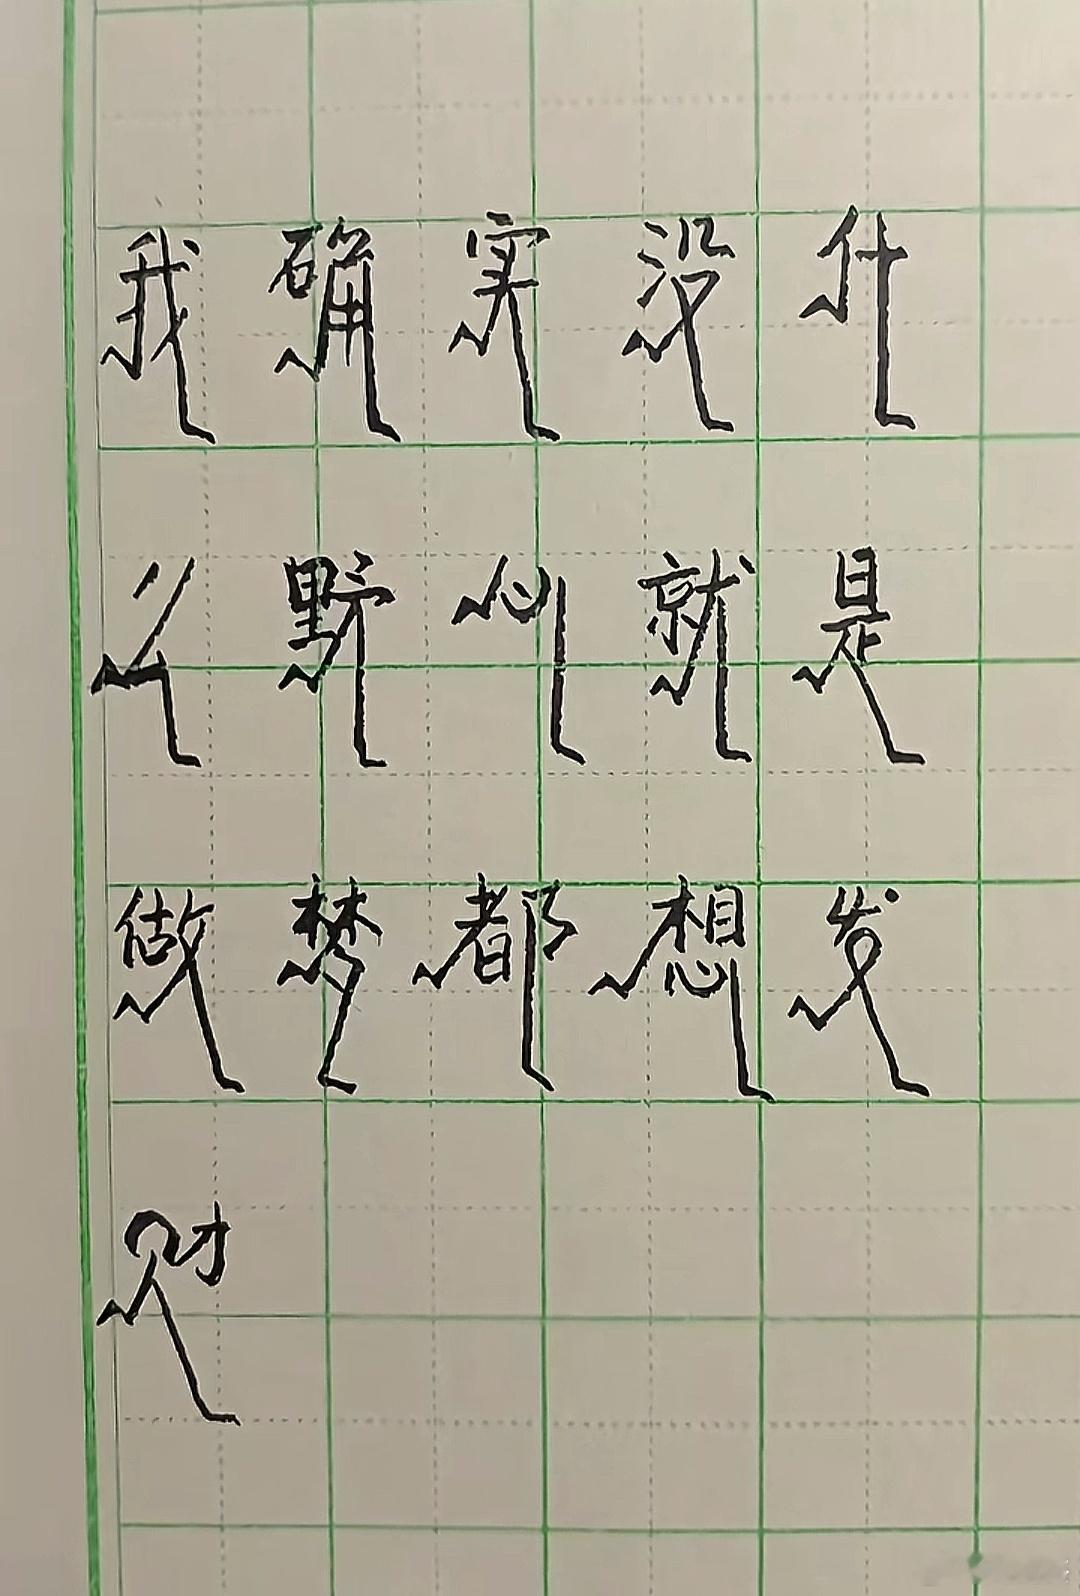 我确实没什
么野心就是
做梦都想发
财